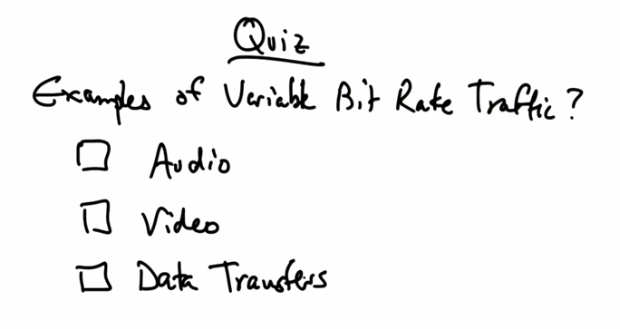 Quiz
Examples of Variable Bit Rate Traffic?
Audio
Video
Data Transfers